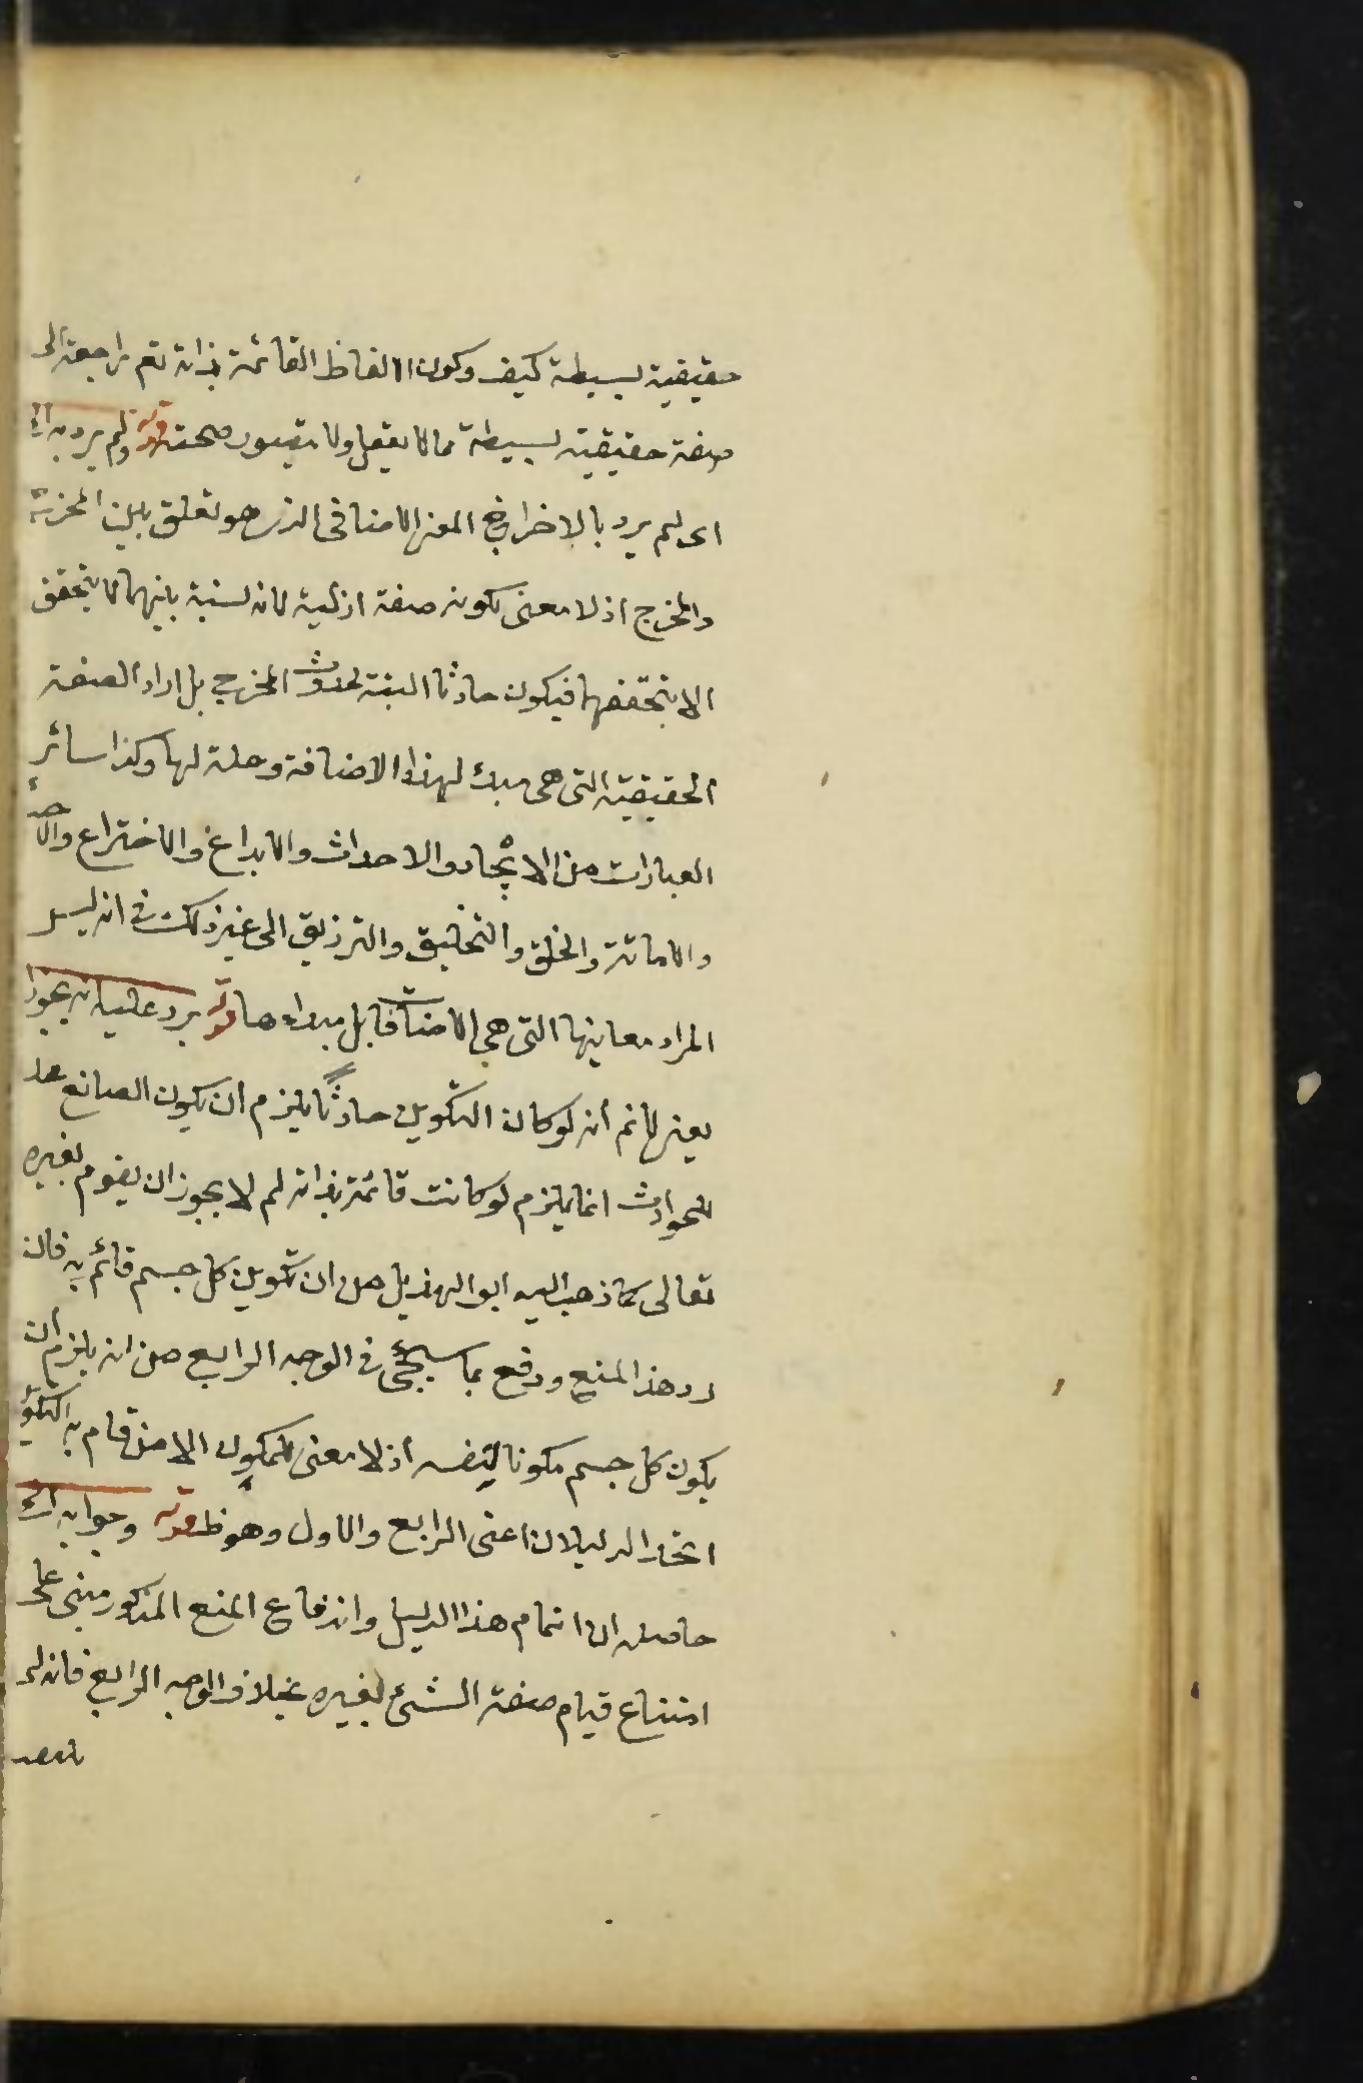 حقيقية بسيطة كيف وكون الالفاظ القائمة بذاته تع راجعة الى
صفة حقيقية بسيطة مما لا يعقل ولا يتصور صحته قوله ولم يرد به الخ
اى لم يرد بالاخراج المعنى الاضافى الذى هو تعلق بين المخرج
والمخرج اذ لا معنى لكونه صفة ازلية لانه نسبة بينهما لا يتحقق
الا بتحققهما فيكون حادثا البتة لحدوث المخرج بل اراد الصفة
الحقيقية التى هى مبدأ لهذا الاضافة وعلة لها وكذا سائر
العبارات من الايجاد والاحداث والابداع والاختراع والاحياء
والاماتة والخلق والتخليق والترزيق الى غير ذلك فى انه ليس
المراد معانيها التى هى الاضافات بل مبداء ها قوله يرد عليه انه يجوز الخ
يعنى لا نم أنه لو كان التكوين حادثا يلزم ان يكون الصانع محلا
للحوادث انما يلزم لو كانت قائمة بذاته لم لا يجوز ان يقوم بغيره
تعالى كما ذهب اليه ابو الهذيل من ان تكوين كل جسم قائم به فان
رد هذا المنع ودفع بما سيجئ فى الوجه الرابع من انه يلزم ان
يكون كل جسم مكونا لنفسه اذ لا معنى للمكون الا من قام به التكوين
اتحد الدليلان اعنى الرابع والاول وهو ظ قوله وجوابه ان الخ
حاصله ان اتمام هذا الدليل واندفاع المنع المذكور مبنى على
امتناع قيام صفة الشئ بغيره بخلاف الوجه الرابع فانه لم